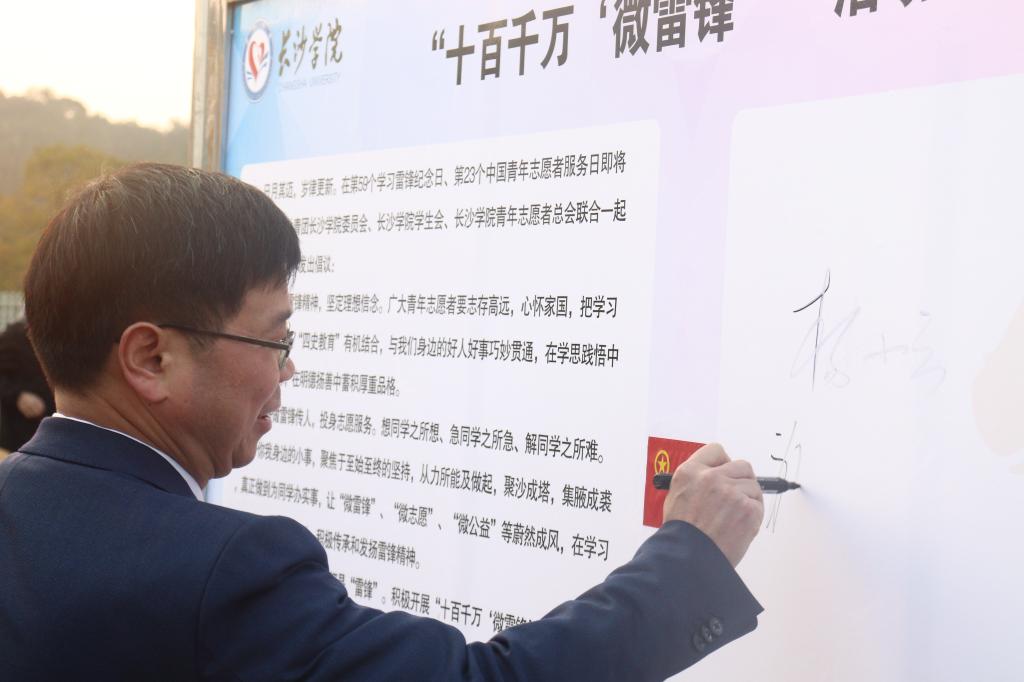 长沙学院
CHANGSHA UNIVERSITY
“十百千万‘微雷锋
日月其迈，岁律更新。在第59个学习雷锋纪念日、第23个中国青年志愿者服务日即将
青团长沙学院委员会、长沙学院学生会、长沙学院青年志愿者总会联合一起
发出倡议：
锋精神，坚定理想信念。广大青年志愿者要志存高远，心怀家国，把学习
“四史教育”有机结合，与我们身边的好人好事巧妙贯通，在学思践悟中
在明德扬善中蓄积厚重品格。
雷锋传人，投身志愿服务。想同学之所想、急同学之所急、解同学之所难。
你我身边的小事，聚焦于至始至终的坚持，从力所能及做起，聚沙成塔，集腋成裘
，真正做到为同学办实事，让“微雷锋”、“微志愿”、“微公益”等蔚然成风，在学习
积极传承和发扬雷锋精神。
“雷锋”。积极开展“十百千万‘微雷锋